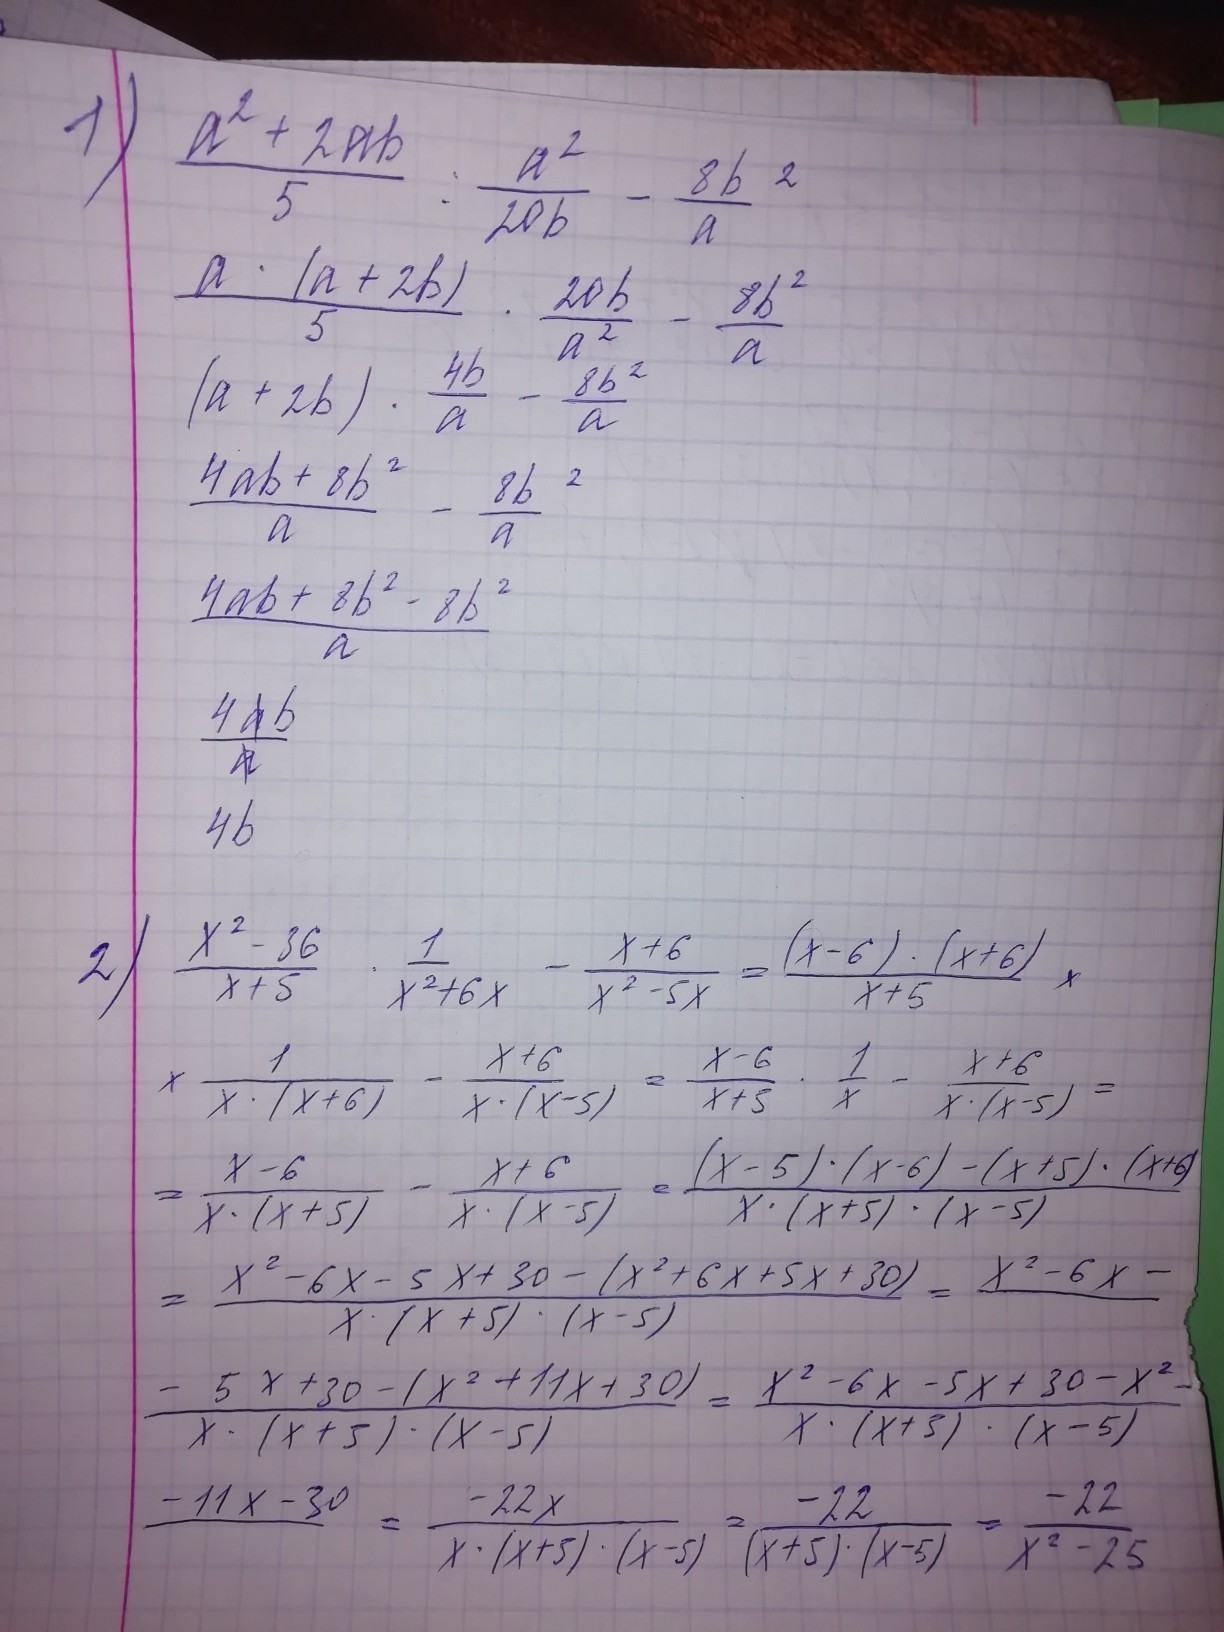 1) (a² + 2ab)/5 : a²/(20b) - 8b²/a
a · (a + 2b)/5 · 20b/a² - 8b²/a
(a + 2b) · 4b/a - 8b²/a
(4ab + 8b²)/a - 8b²/a
(4ab + 8b² - 8b²)/a
4ab/a
4b
2) (x² - 36)/(x + 5) · 1/(x² + 6x) - (x + 6)/(x² - 5x) = (x - 6) · (x + 6)/(x + 5) ×
× 1/(x · (x + 6)) - (x + 6)/(x · (x - 5)) = (x - 6)/(x + 5) · 1/x - (x + 6)/(x · (x - 5)) =
= (x - 6)/(x · (x + 5)) - (x + 6)/(x · (x - 5)) = ((x - 5) · (x - 6) - (x + 5) · (x + 6))/(x · (x + 5) · (x - 5))
= (x² - 6x - 5x + 30 - (x² + 6x + 5x + 30))/(x · (x + 5) · (x - 5)) = x² - 6x -
(- 5x + 30 - (x² + 11x + 30))/(x · (x + 5) · (x - 5)) = (x² - 6x - 5x + 30 - x² -)/(x · (x + 5) · (x - 5))
- 11x - 30 = -22x/(x · (x + 5) · (x - 5)) = -22/((x + 5) · (x - 5)) = -22/(x² - 25)